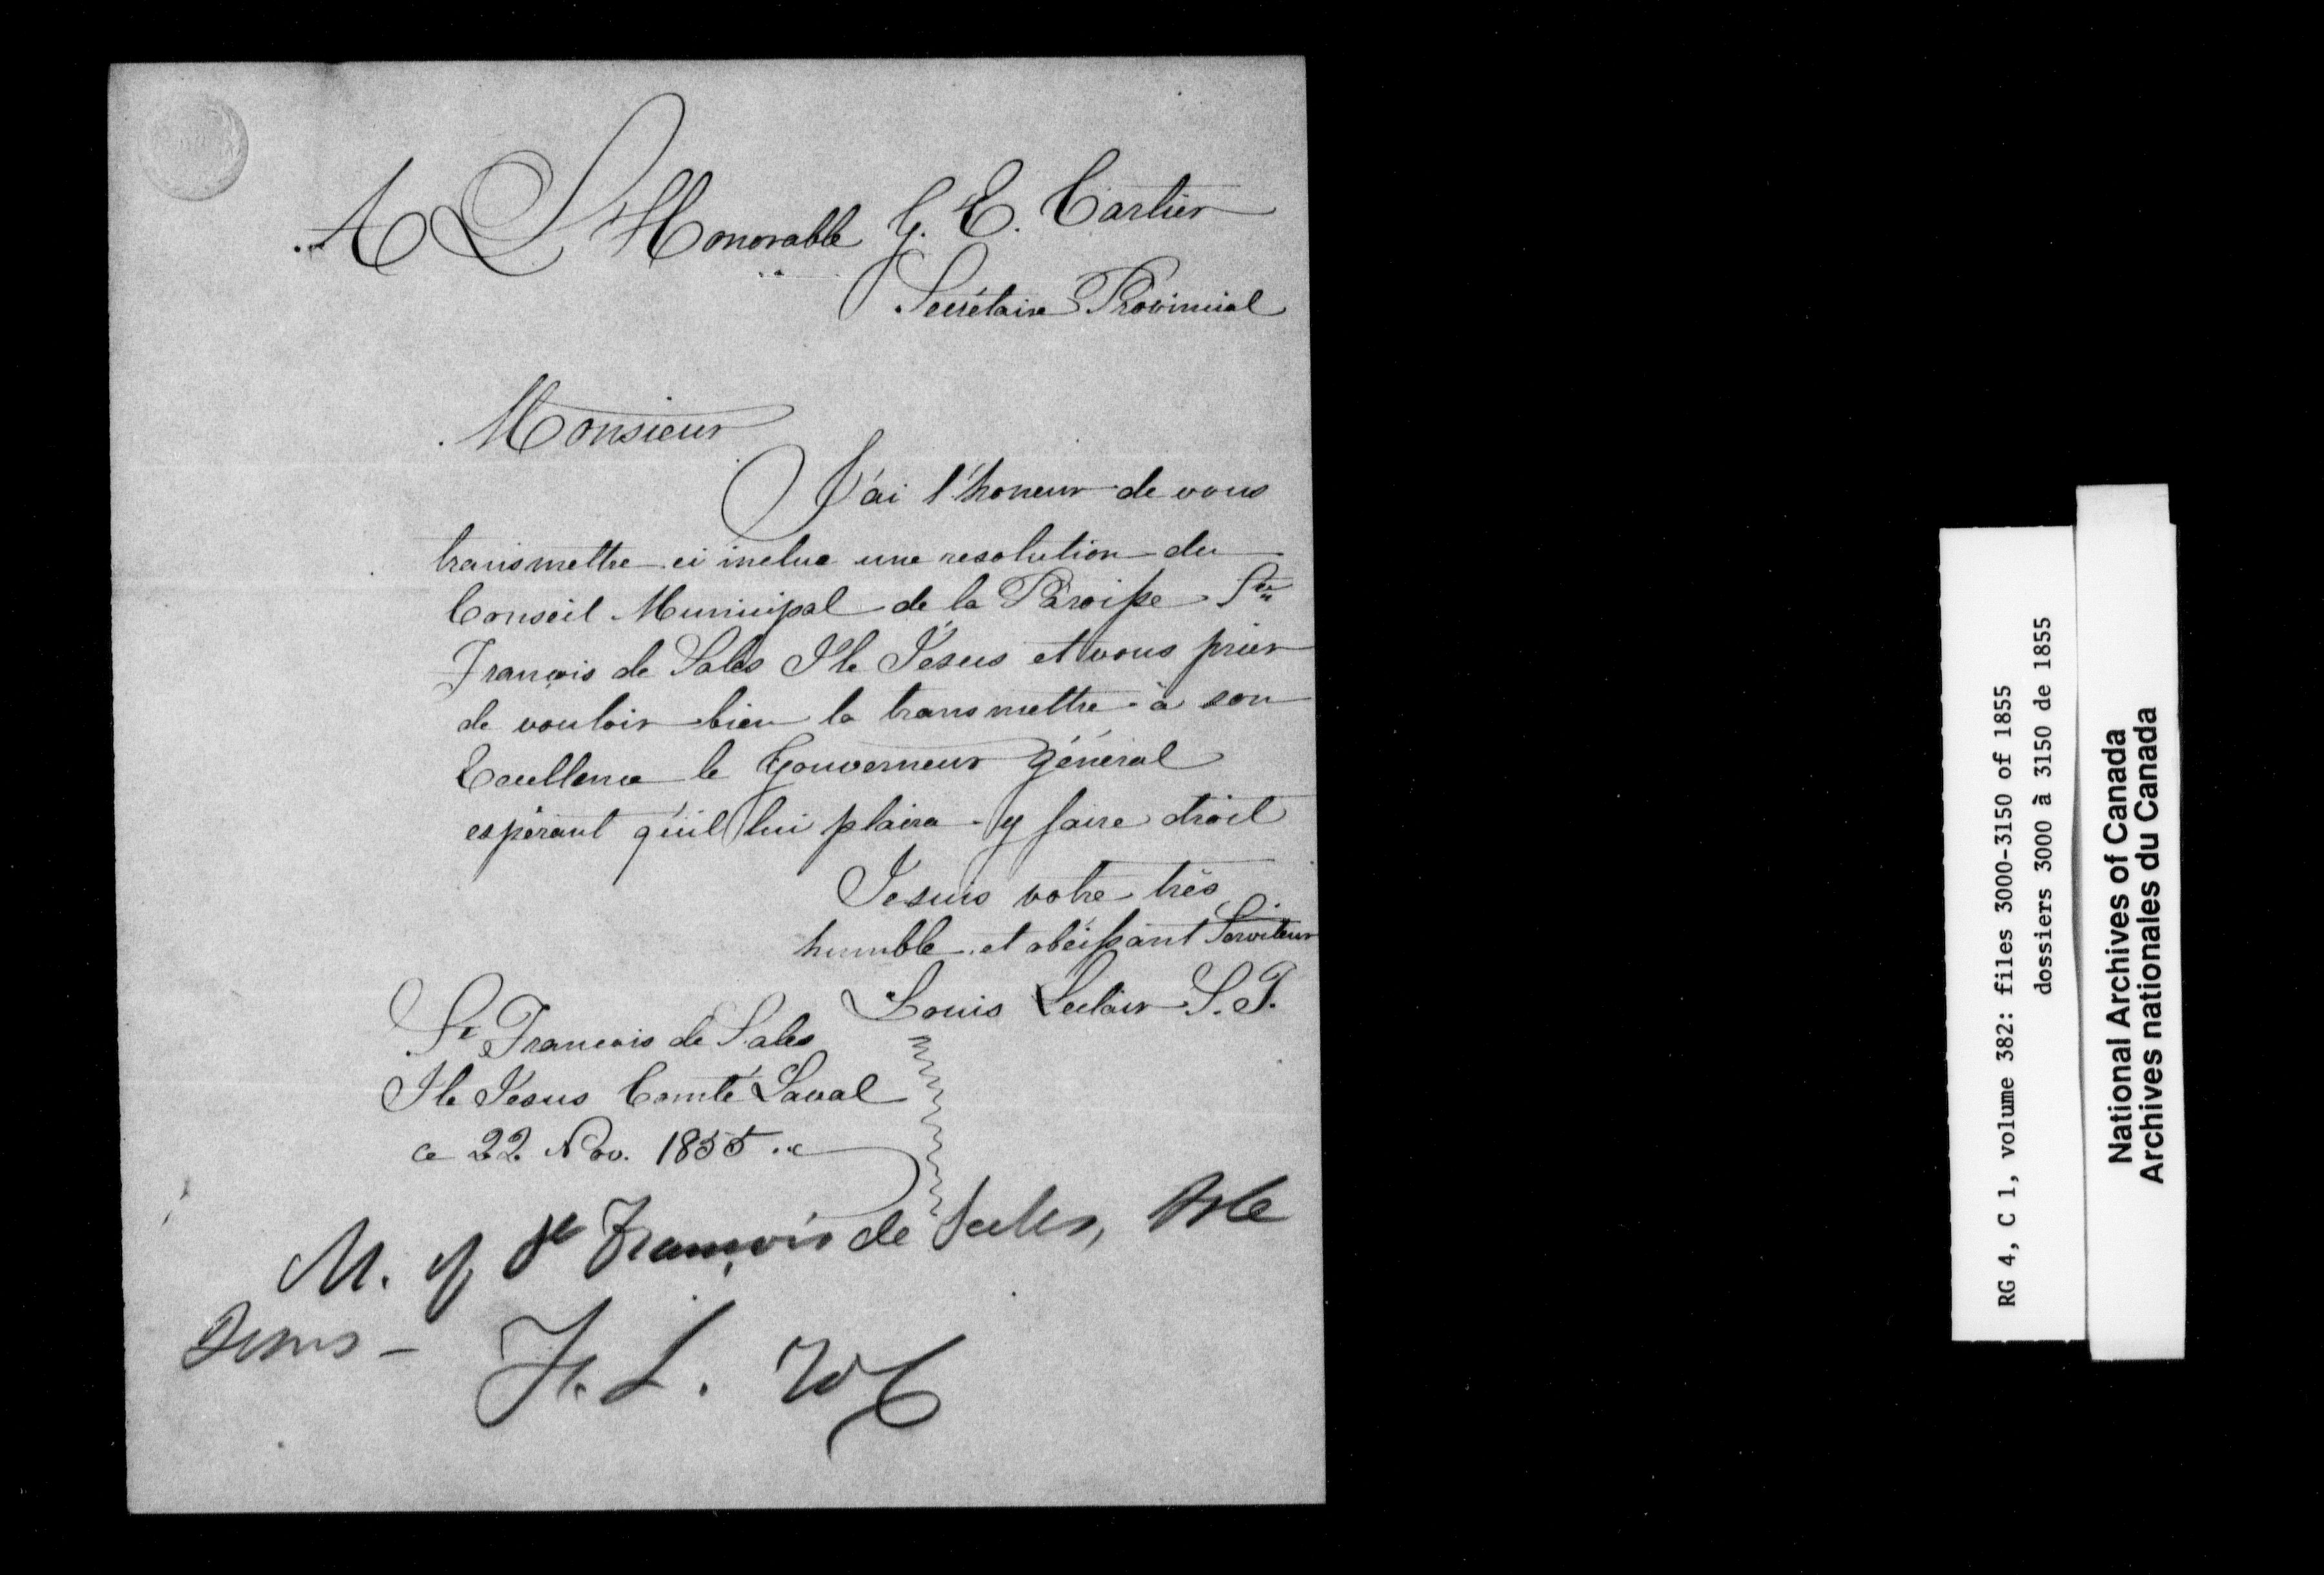 A L'Honorable G. E. Cartier
Secrétaire Provincial
Monsieur
J'ai l'honeur de vous
transmettre ci inclue une resolution du
Conseil Municipal de la Paroisse St
François de Sales Ile Jésus et vous prier
de vouloir bien la transmettre à son
Excellence le Gouverneur Général
espérant qu'il lui plaira y faire droit
Je suis votre très
humble et obéissant Serviteur
Louis Leclair S. T.
St François de Sales
Ile Jésus Comté Laval
ce 22 Nov. 1855
M. of St François de Salles, Isle
Jesus –
RG 4, C 1, volume 382: files 3000-3150 of 1855
dossiers 3000 à 3150 de 1855
National Archives of Canada
Archives nationales du Canada